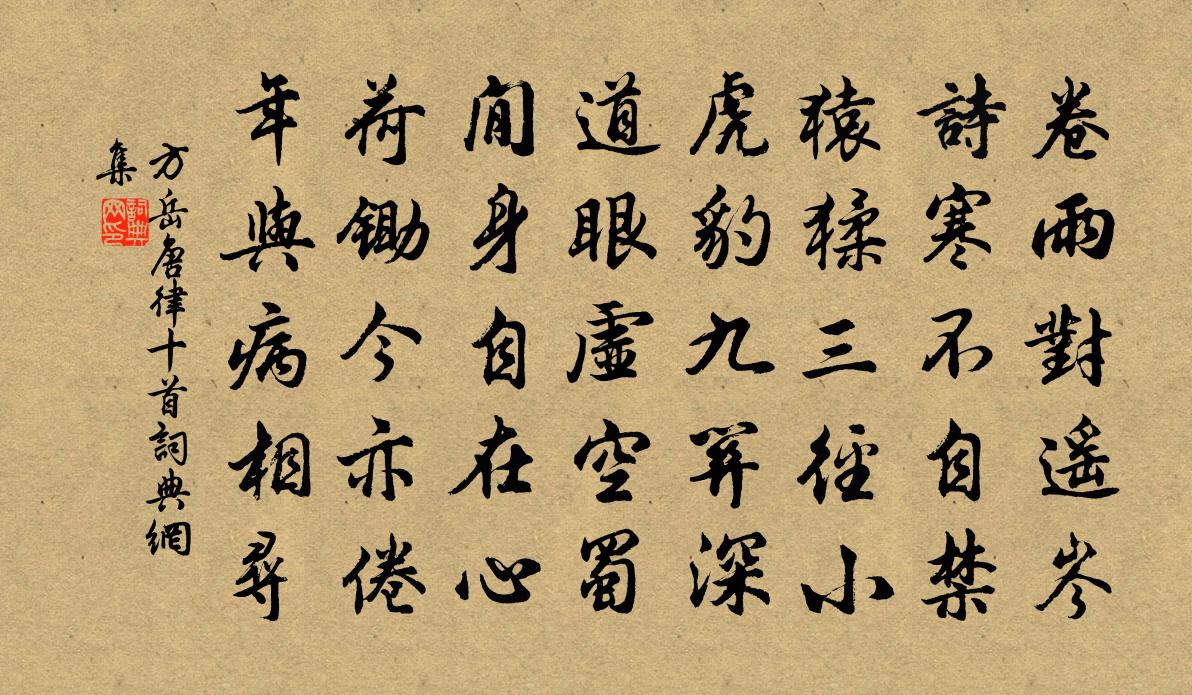 卷雨對遙岑
詩寒不自禁
猿猱三徑小
虎豹九關深
道眼虛空蜀
閒身自在心
荷鋤今亦倦
年與病相尋
方岳唐律十首詞典網
集
詞典网印